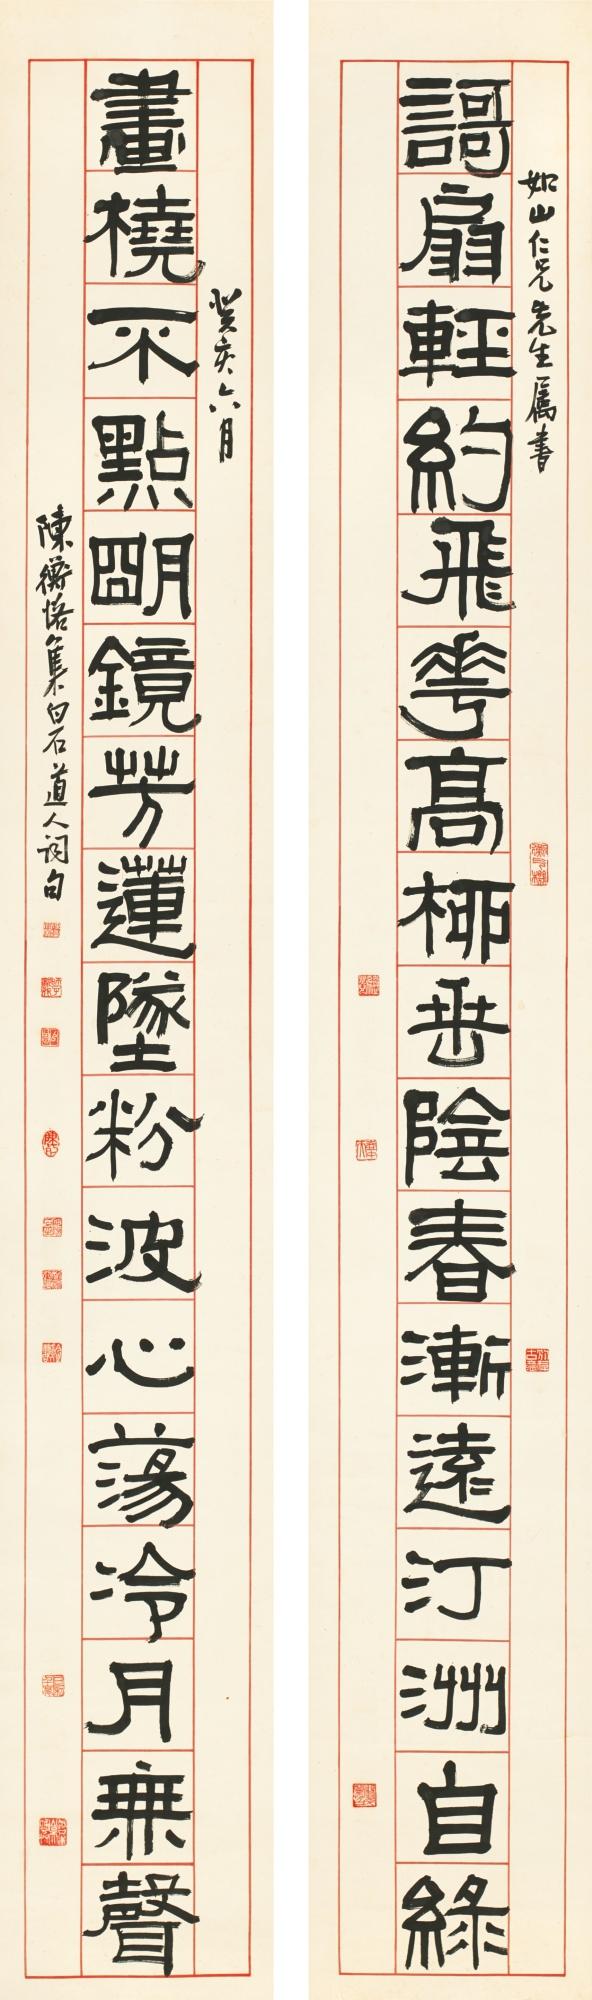 如山仁兄先生属書
謌扇輕約飛花高柳垂陰春漸遠汀洲自綠
癸亥六月
畫橈不點明鏡芳蓮墜粉波心蕩冷月無聲
陳衡恪集白石道人詞句